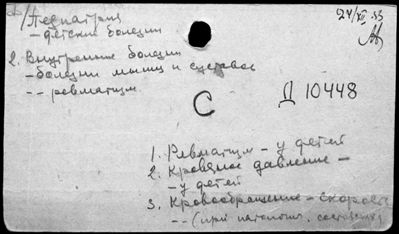 1/ Педиатрия
24/XII 53
- детские болезни
2. Внутренние болезни
- болезни мышц и суставов
-- ревматизм
С
Д 10448
1. Ревматизм - у детей
2. Кровяное давление -
- у детей
3. Кровообращение - скорость
-- (при патолог. состояниях)